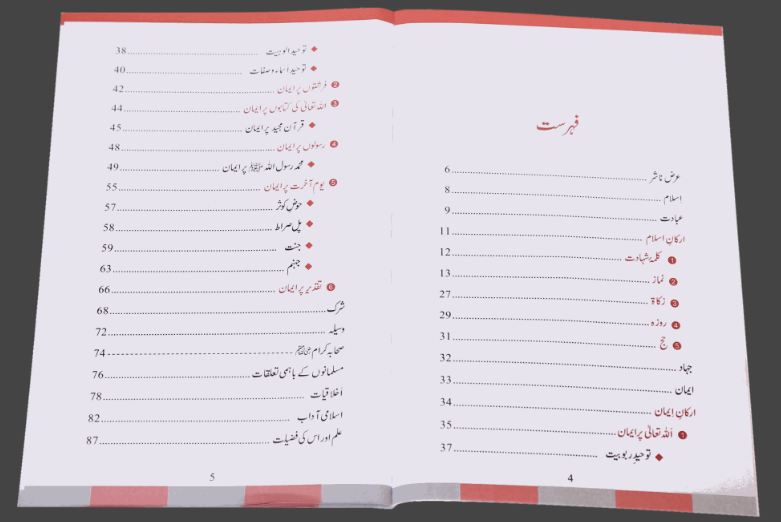 فہرست
عرض ناشر ........ 6
اسلام ........ 8
عبادت ........ 9
ارکانِ اسلام ........ 11
❶ کلمۂ شہادت ........ 12
❷ نماز ........ 13
❸ زکاۃ ........ 27
❹ روزہ ........ 29
❺ حج ........ 31
جہاد ........ 32
ایمان ........ 33
ارکانِ ایمان ........ 34
❶ اللہ تعالیٰ پر ایمان ........ 35
◆ توحیدِ ربوبیت ........ 37
4
◆ توحید الوہیت ........ 38
◆ توحید اسماء وصفات ........ 40
❷ فرشتوں پر ایمان ........ 42
❸ اللہ تعالیٰ کی کتابوں پر ایمان ........ 44
◆ قرآن مجید پر ایمان ........ 45
❹ رسولوں پر ایمان ........ 48
◆ محمد رسول اللہ ﷺ پر ایمان ........ 49
❺ یومِ آخرت پر ایمان ........ 55
◆ حوضِ کوثر ........ 57
◆ پل صراط ........ 58
◆ جنت ........ 59
◆ جہنم ........ 63
❻ تقدیر پر ایمان ........ 66
شرک ........ 68
وسیلہ ........ 72
صحابہ کرام ........ 74
مسلمانوں کے باہمی تعلقات ........ 76
اخلاقیات ........ 78
اسلامی آداب ........ 82
علم اور اس کی فضیلت ........ 87
5